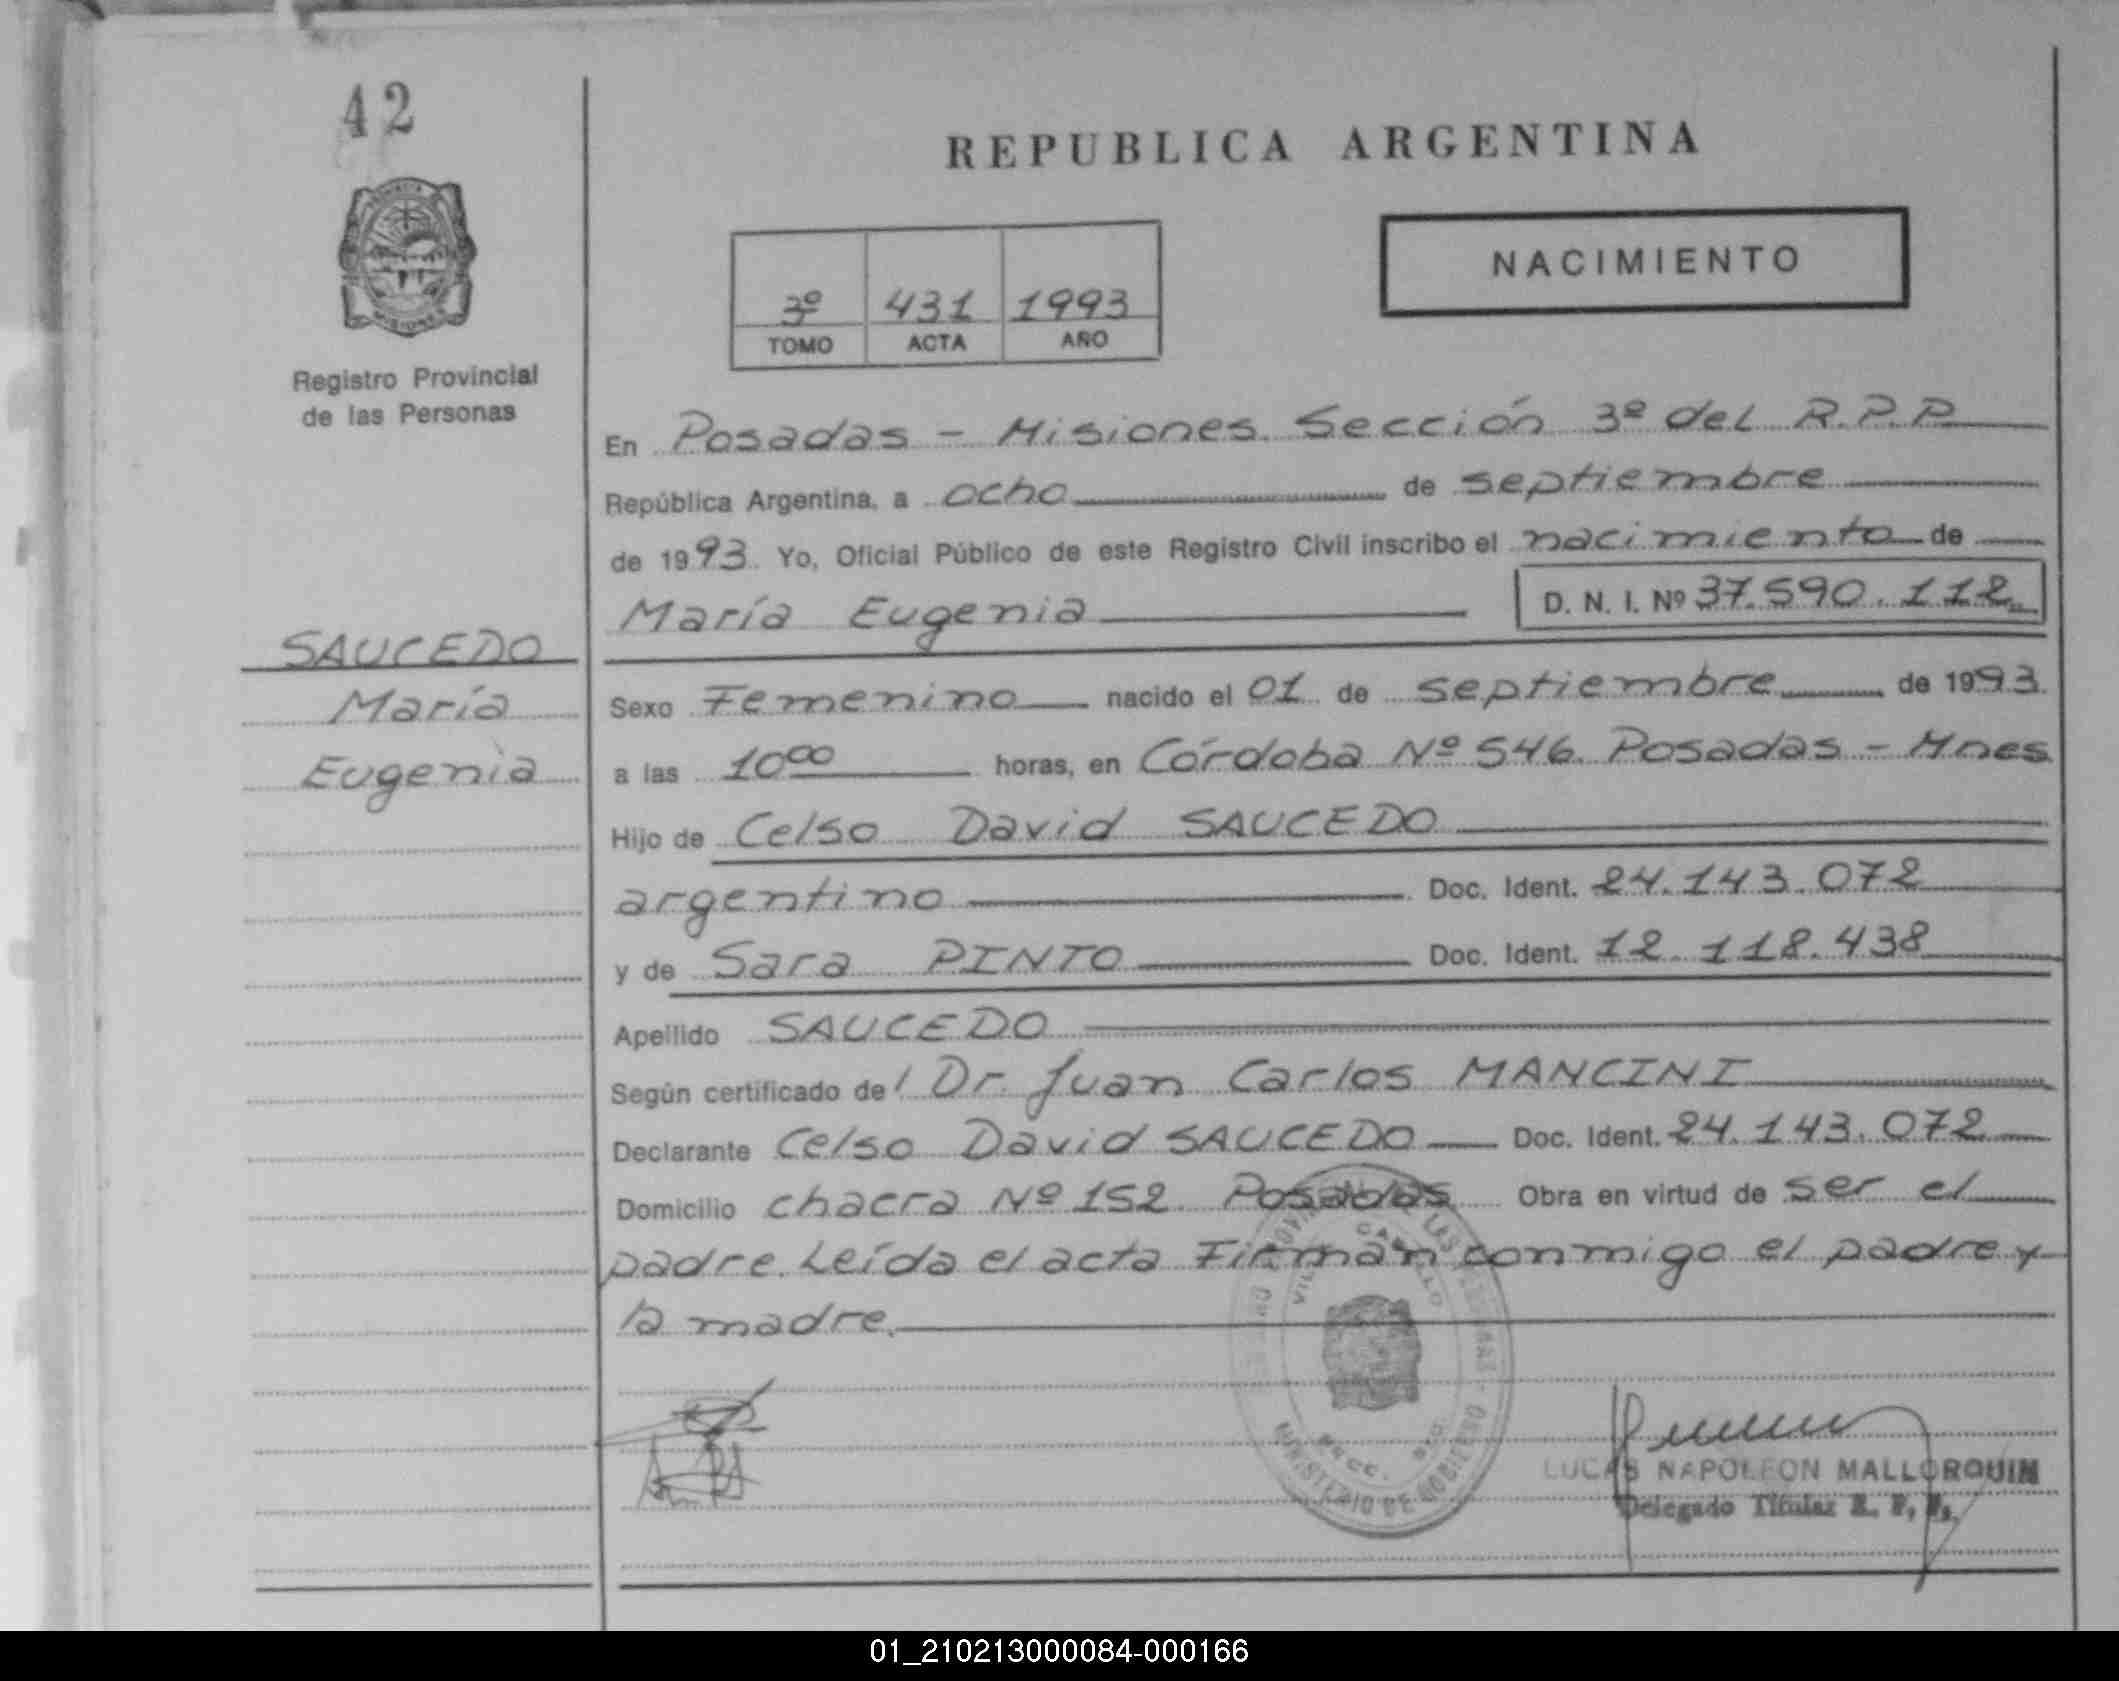 42
REPUBLICA ARGENTINA
NACIMIENTO
3º 431 1993
TOMO ACTA AÑO
MISIONES
Registro Provincial
de las Personas
En Posadas - Misiones. Sección 3º del R.P.P.
República Argentina, a ocho de septiembre
de 1993. Yo, Oficial Público de este Registro Civil inscribo el nacimiento de
María Eugenia D. N. I. Nº 37.590.112
SAUCEDO
María
Eugenia
Sexo Femenino nacido el 01 de septiembre de 1993.
a las 10⁰⁰ horas, en Córdoba Nº 546. Posadas - Mnes
Hijo de Celso David SAUCEDO
argentino Doc. Ident. 24.143.072
y de Sara PINTO Doc. Ident. 12.118.438
Apellido SAUCEDO
Según certificado de/ Dr. Juan Carlos MANCINI
Declarante Celso David SAUCEDO Doc. Ident. 24.143.072
Domicilio chacra Nº 152 Posadas Obra en virtud de ser el
padre. Leída el acta Firman conmigo el padre y
la madre.
MINISTERIO DE GOBIERNO
LUCAS NAPOLEON MALLORQUIN
Delegado Titular R. P. P.
01_210213000084-000166